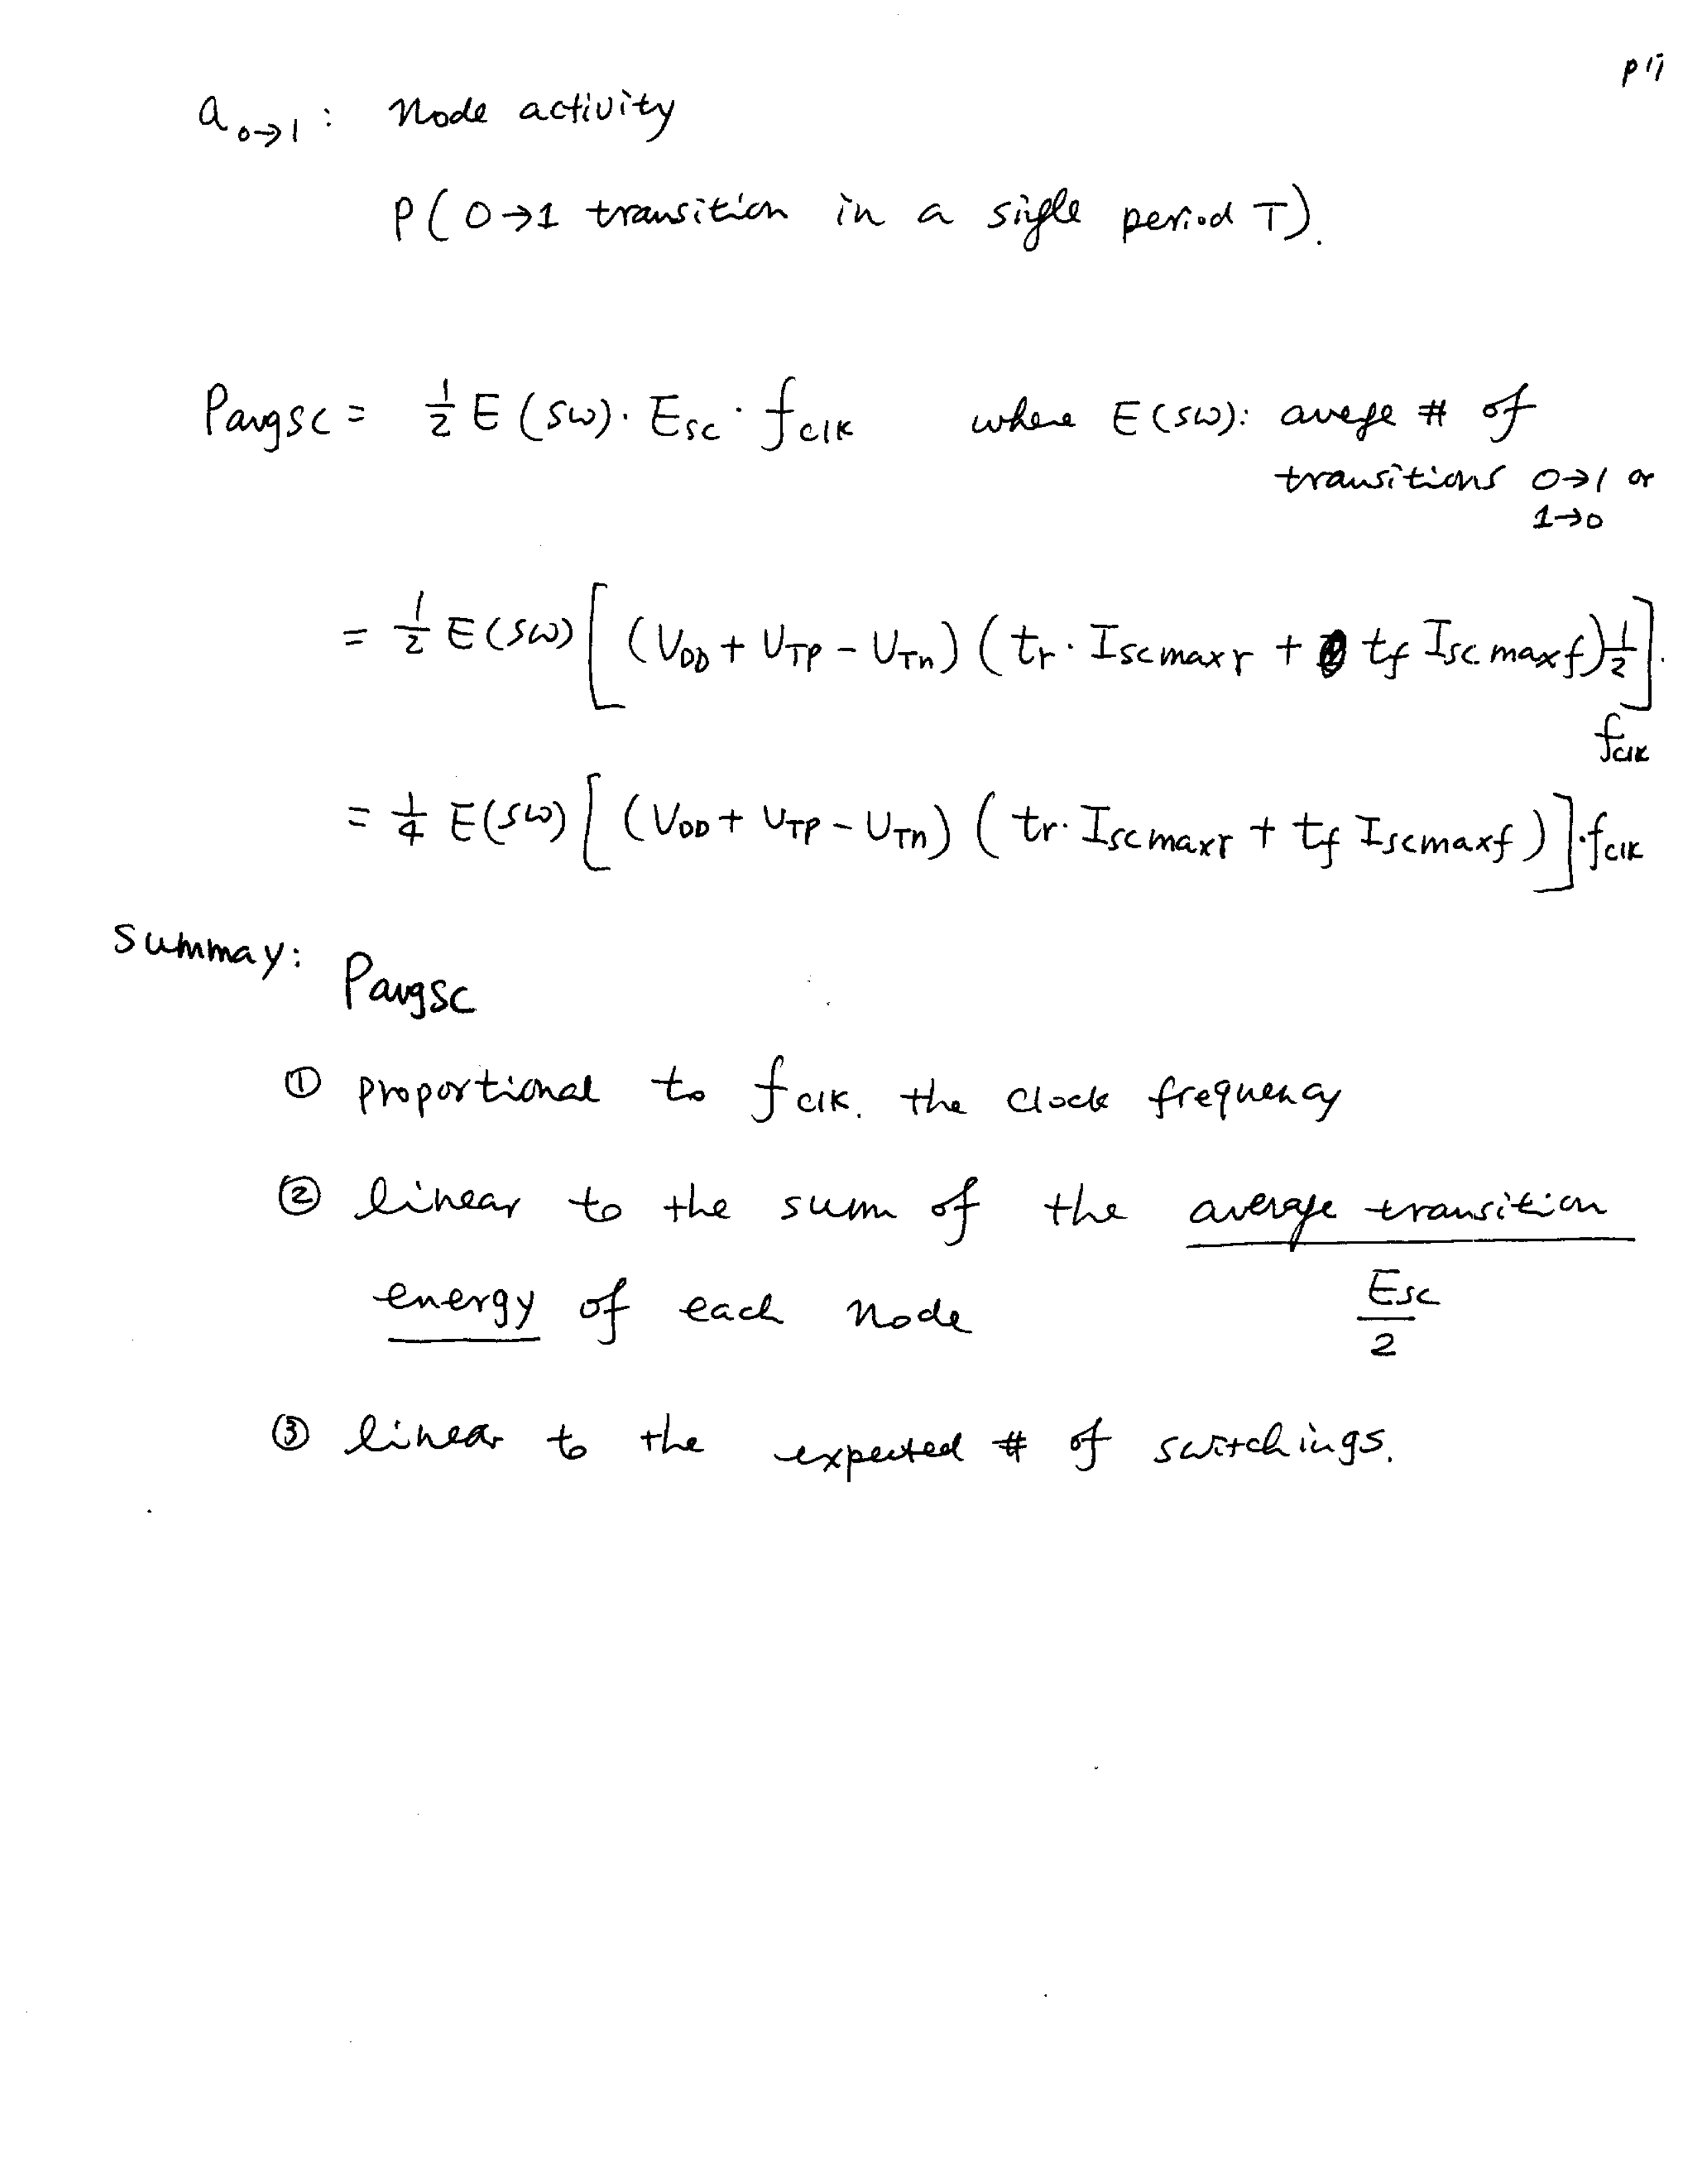 p 11
a0→1 : Node activity
P(0→1 transition in a sigle period T).
Pavgsc = 1/2 E(sw)·Esc·fclk where E(sw): avege # of
transitions 0→1 or
1→0
= 1/2 E(sw)[(VDD + VTP - VTn)(tr·Iscmaxr + tf Iscmaxf)1/2]·
fclk
= 1/4 E(sw)[(VDD + VTP - VTn)(tr·Iscmaxr + tf Iscmaxf)]·fclk
Summay: Pavgsc
① proportional to fclk. the clock frequency
② linear to the sum of the average transition
energy of each node Esc/2
③ linear to the expected # of switchings.